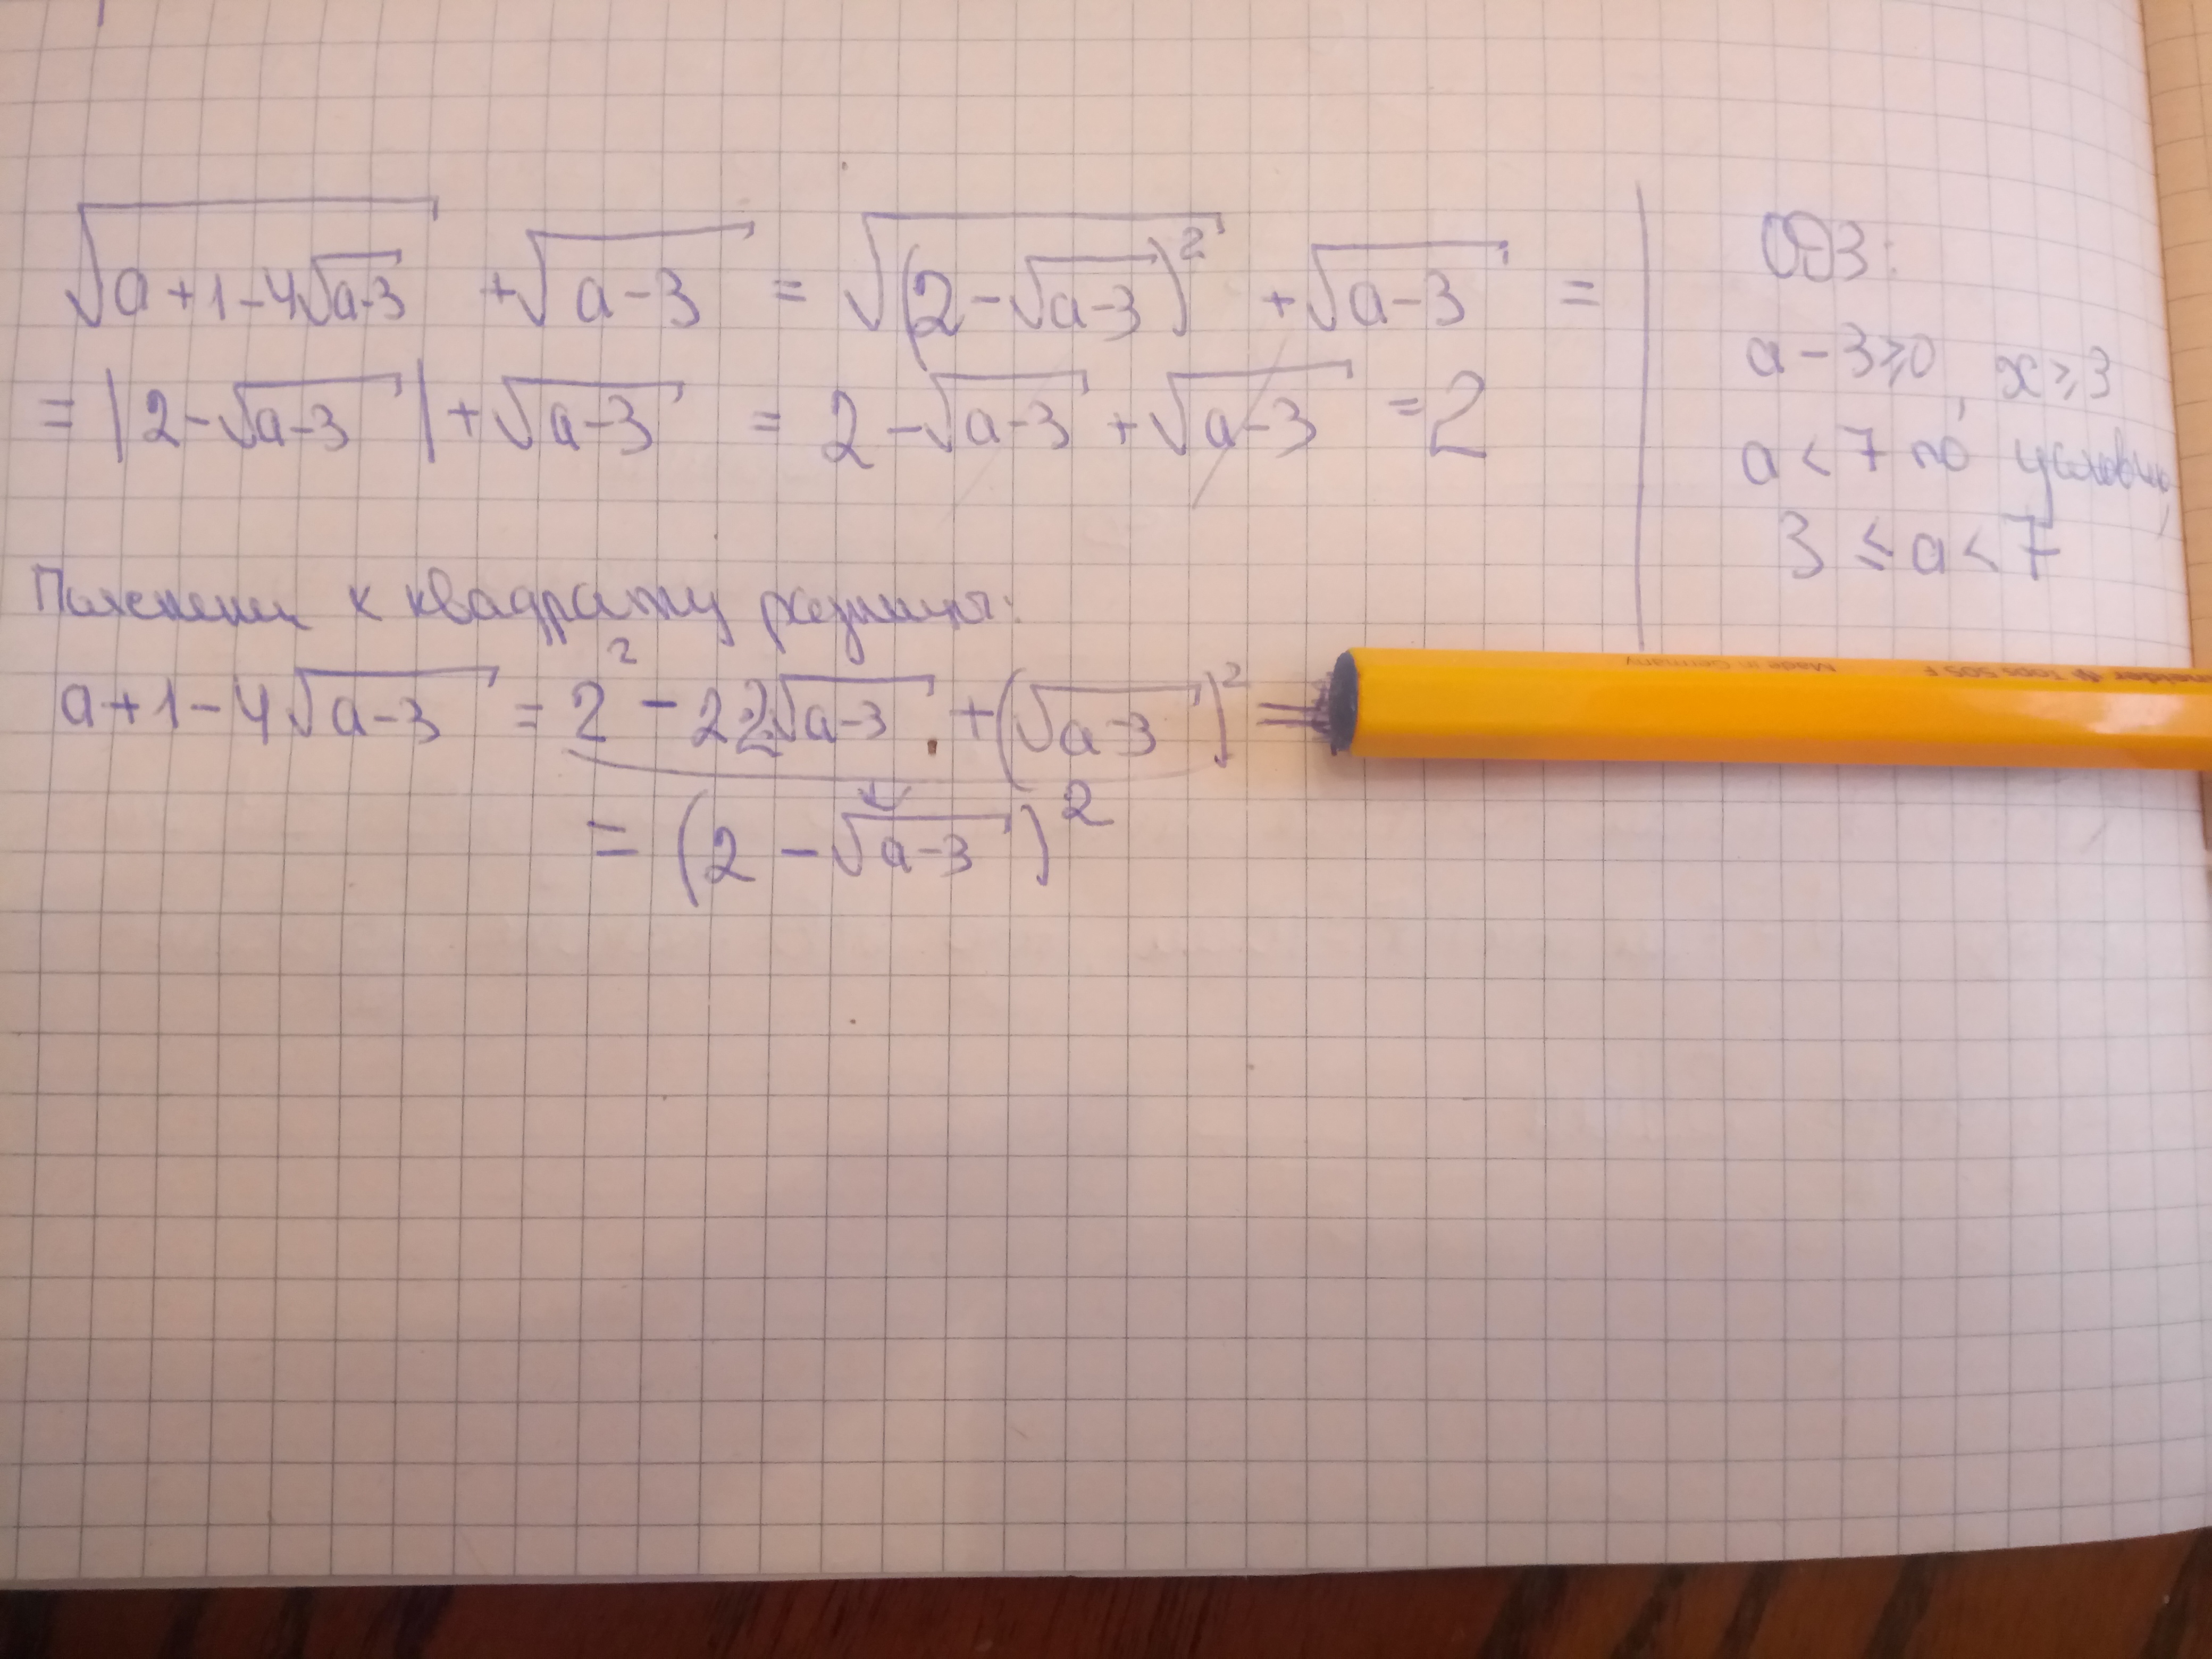 √(a+1-4√(a-3)) + √(a-3) = √((2-√(a-3))²) + √(a-3) =
= |2-√(a-3)| + √(a-3) = 2-√(a-3) + √(a-3) = 2
ОДЗ:
a-3≥0, x≥3
a<7 по условию,
3≤a<7
Пояснение к квадрату разницы:
a+1-4√(a-3) = 2² - 2·2√(a-3) + (√(a-3))² =
= (2-√(a-3))²
Tops 505 F
Made in Germany